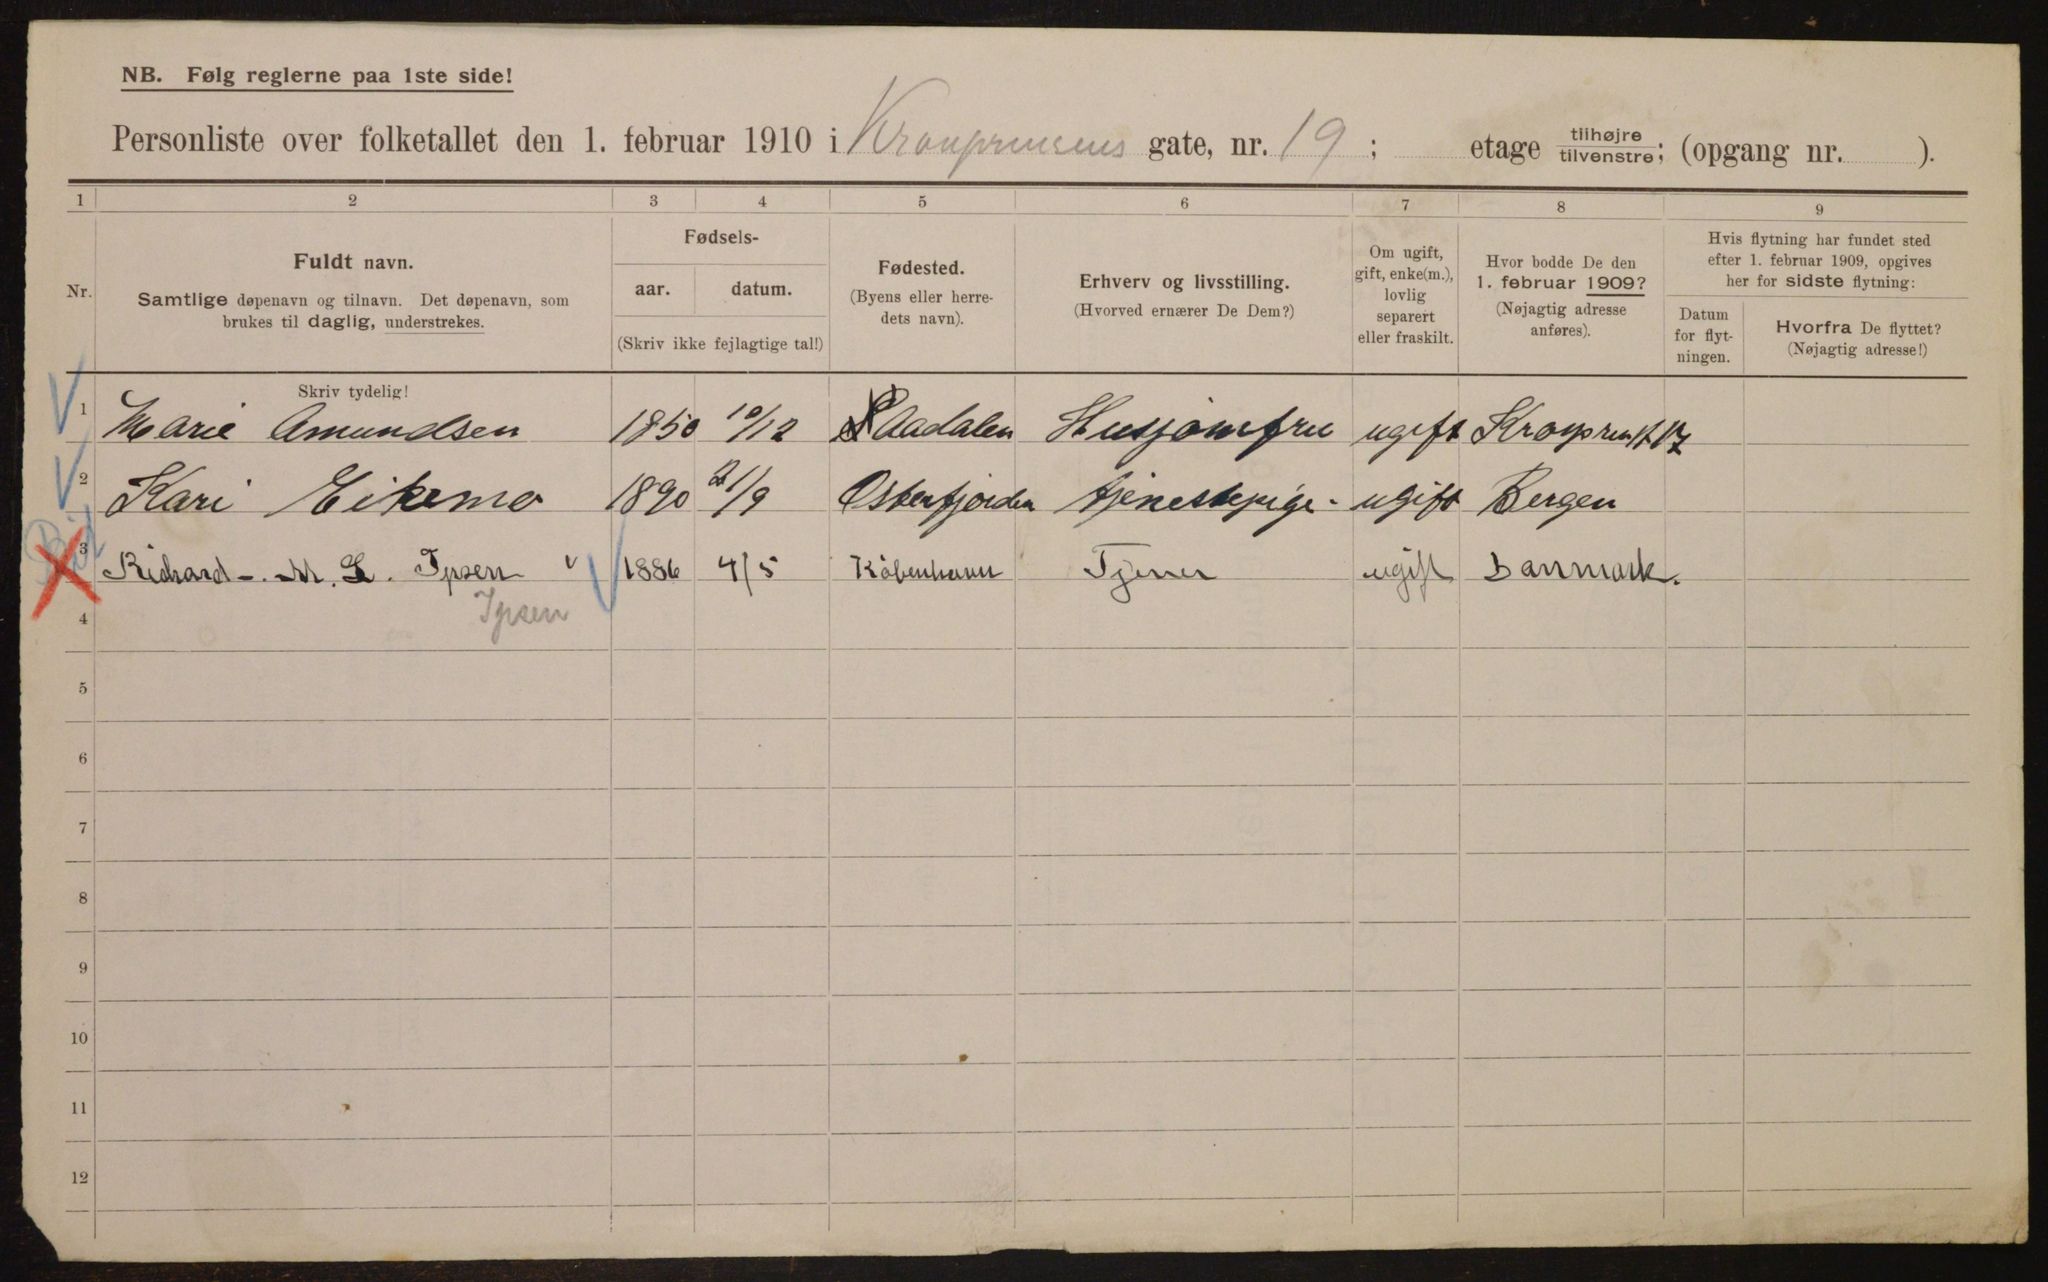 NB. Følg reglerne paa 1ste side!
Personliste over folketallet den 1. februar 1910 i Kronprinsens gate, nr. 19 ; etage tilhøjre/tilvenstre; (opgang nr. ).
1 2 3 4 5 6 7 8 9
Nr.
Fuldt navn.
Samtlige døpenavn og tilnavn. Det døpenavn, som
brukes til daglig, understrekes.
Skriv tydelig!
Fødsels-
aar. datum.
(Skriv ikke fejlagtige tal!)
Fødested.
(Byens eller herre-
dets navn).
Erhverv og livsstilling.
(Hvorved ernærer De Dem?)
Om ugift,
gift, enke(m.),
lovlig
separert
eller fraskilt.
Hvor bodde De den
1. februar 1909?
(Nøjagtig adresse
anføres).
Hvis flytning har fundet sted
efter 1. februar 1909, opgives
her for sidste flytning:
Datum
for flyt-
ningen.
Hvorfra De flyttet?
(Nøjagtig adresse!)
1 Marie Amundsen 1850 10/12 Aadalen Husjomfru ugift Kronprin 17
2 Kari Eikemo 1890 21/9 Osterfjorden tjenestepige - ugift Bergen
3 Richard M. L. Ipsen 1886 4/5 København Tjener ugift Danmark.
Ipsen
4
5
6
7
8
9
10
11
12